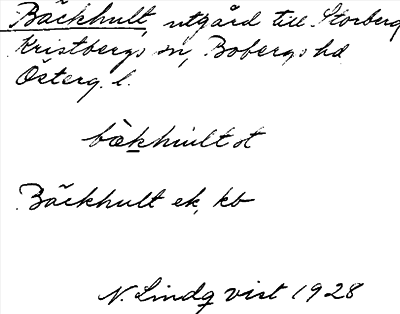 Bäckhult, utgård till Storberg
Kristbergs sn, Bobergs hd
Österg. l.
bækhult st
Bäckhult ek, kb
N. Lindqvist 1928